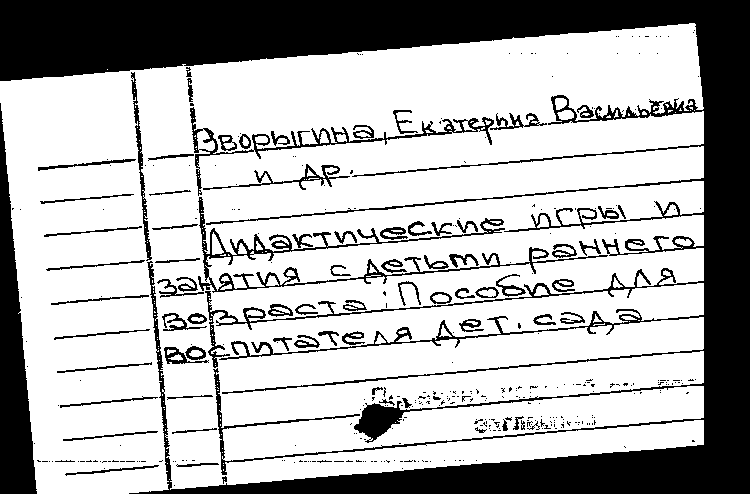 Зворыгина, Екатерина Васильевна
и др.
Дидактические игры и
занятия с детьми раннего
возраста: Пособие для
воспитателя дет. сада
заглавием